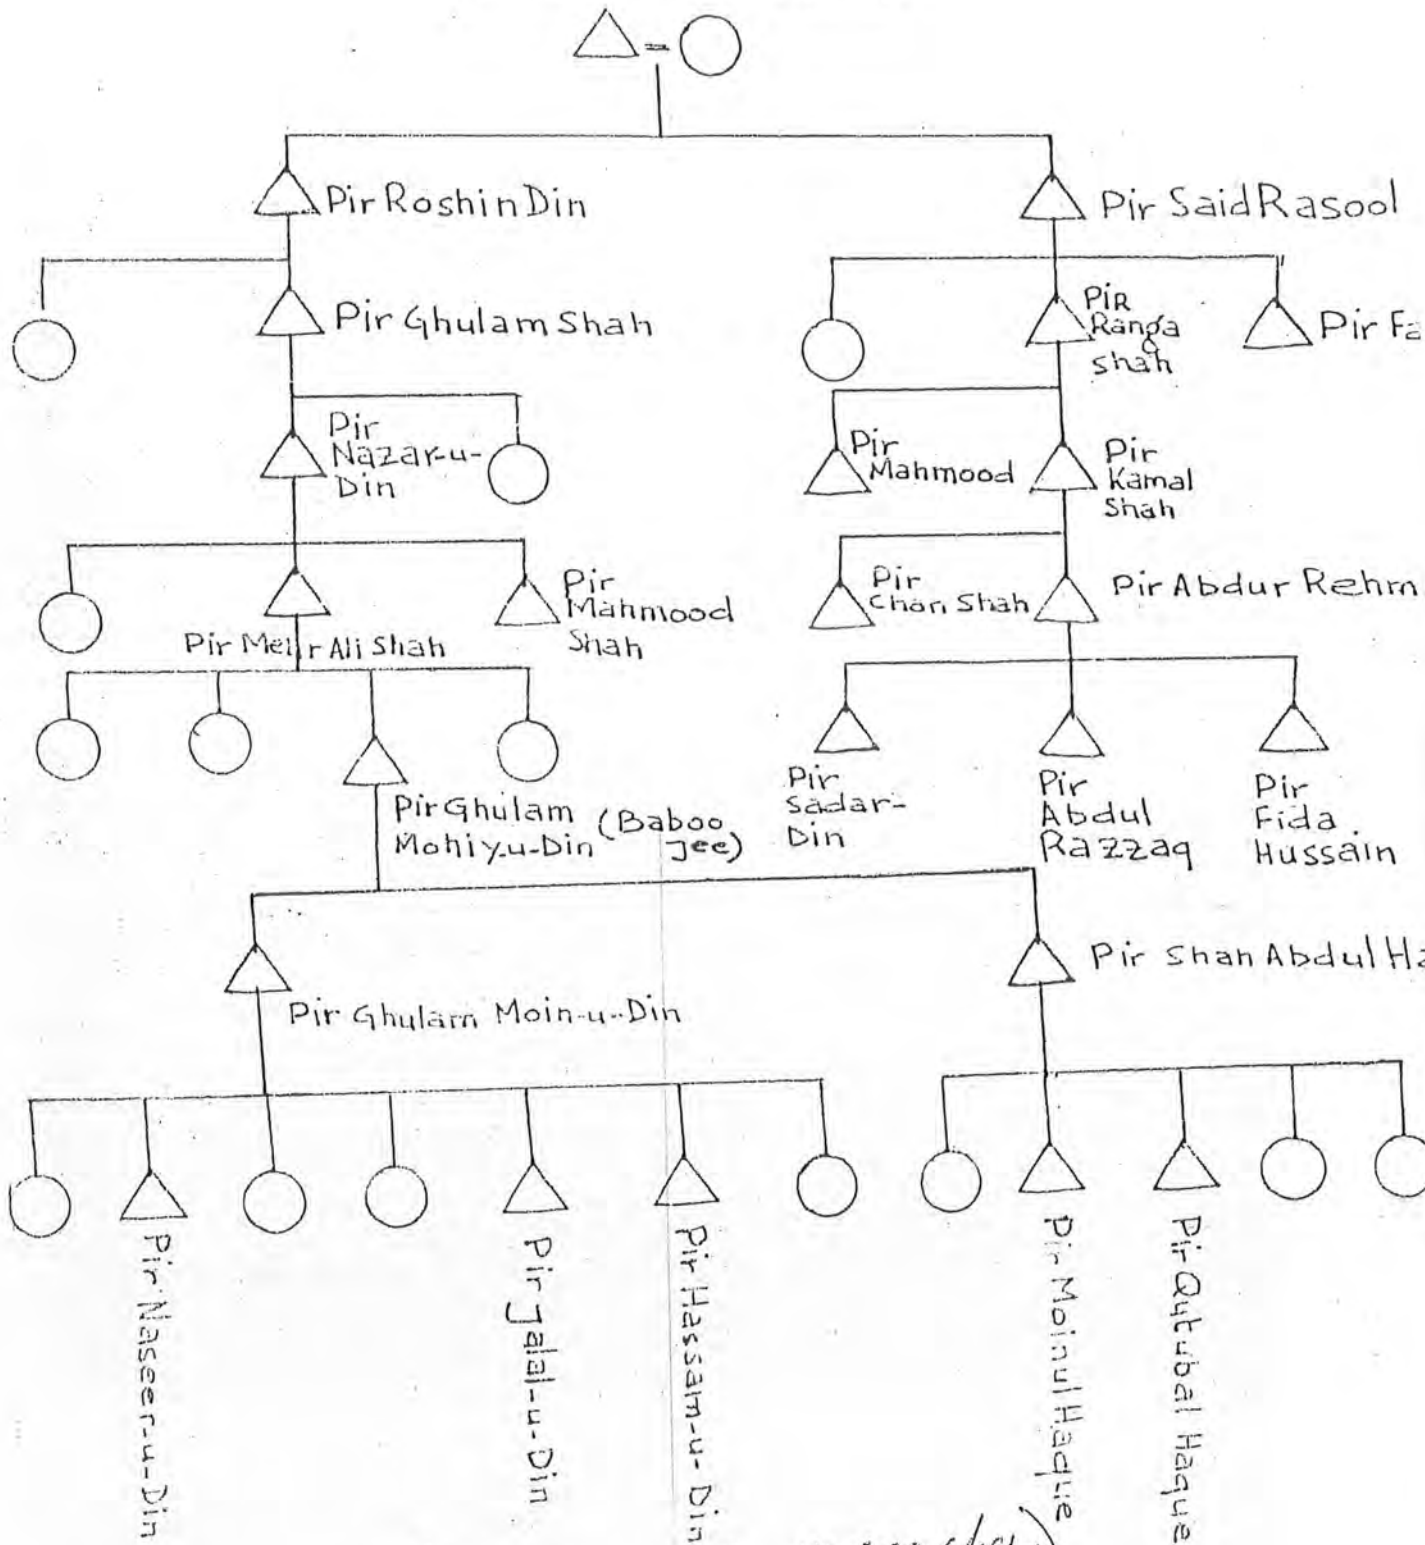 Pir Roshin Din
Pir Said Rasool
Pir Ghulam Shah
PiR
Ranga
shah
Pir Fa
Pir
Nazar-u-
Din
Pir
Mahmood
Pir
Kamal
Shah
Pir Mehr Ali Shah
Pir
Mahmood
Shah
Pir
Chan Shah
Pir Abdur Rehm
Pir Ghulam
Mohiy-u-Din (Baboo
Jee)
Pir
Sadar-
Din
Pir
Abdul
Razzaq
Pir
Fida
Hussain
Pir Ghulam Moin-u-Din
Pir Shah Abdul Ha
Pir Naseer-u-Din
Pir Jalal-u-Din
Pir Hassam-u-Din
Pir Moinul Haque
Pir Qutubal Haque